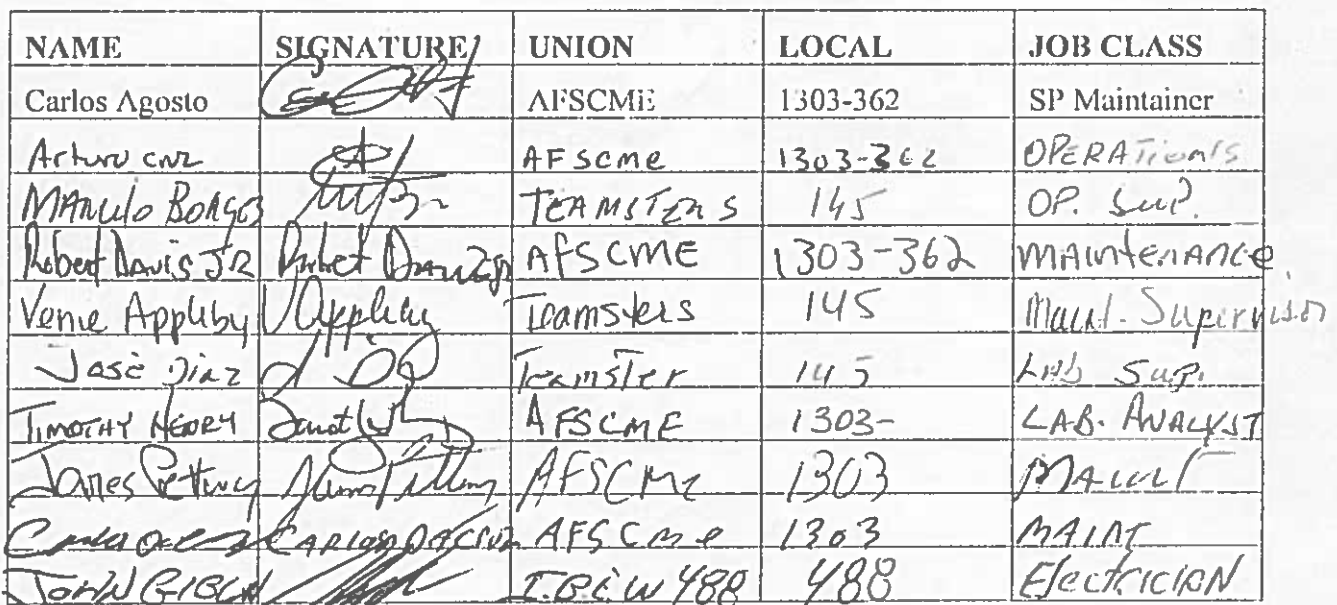 NAME SIGNATURE UNION LOCAL JOB CLASS
Carlos Agosto AFSCME 1303-362 SP Maintainer
Arturo cruz AFscme 1303-362 OPERATions
MANUlo BORGES TEAMSTERS 145 OP. Sup.
Robert DAVIS JR Robert Davis Jr AFSCME 1303-362 MAINtENANCE
Venie Appleby VAppleby Teamsters 145 Maint. Supervisor
Josè Diaz Teamster 145 LAb Sup.
TIMOTHY HENRY AFSCME 1303- LAB. ANALYST
James AFSCMe 1303 MAINT
CARLOS DA CRUZ AFSCme 1303 MAINT
JOHN I.B.E.W 488 488 ElectriciAN